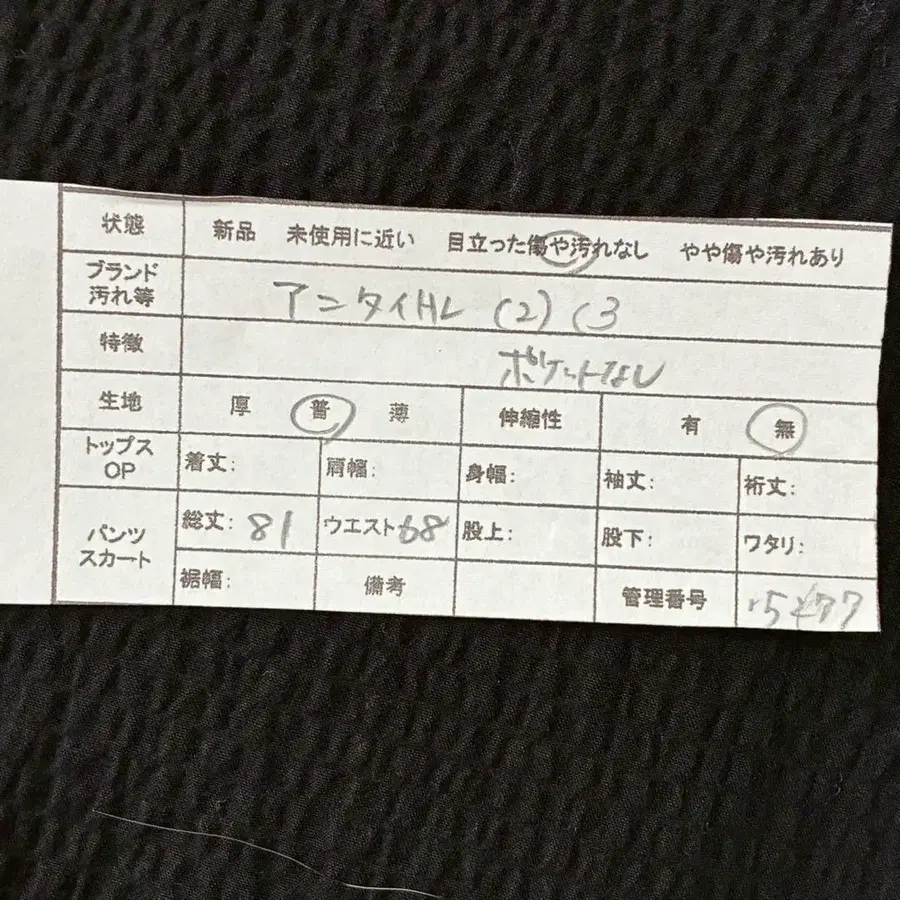 状態 新品 未使用に近い 目立った傷や汚れなし やや傷や汚れあり
ブランド
汚れ等 アンタイトル (2) (3
特徴 ポケットなし
生地 厚 普 薄 伸縮性 有 無
トップス
OP 着丈: 肩幅: 身幅: 袖丈: 裄丈:
パンツ
スカート 総丈: 81 ウエスト 68 股上: 股下: ワタリ:
裾幅: 備考 管理番号